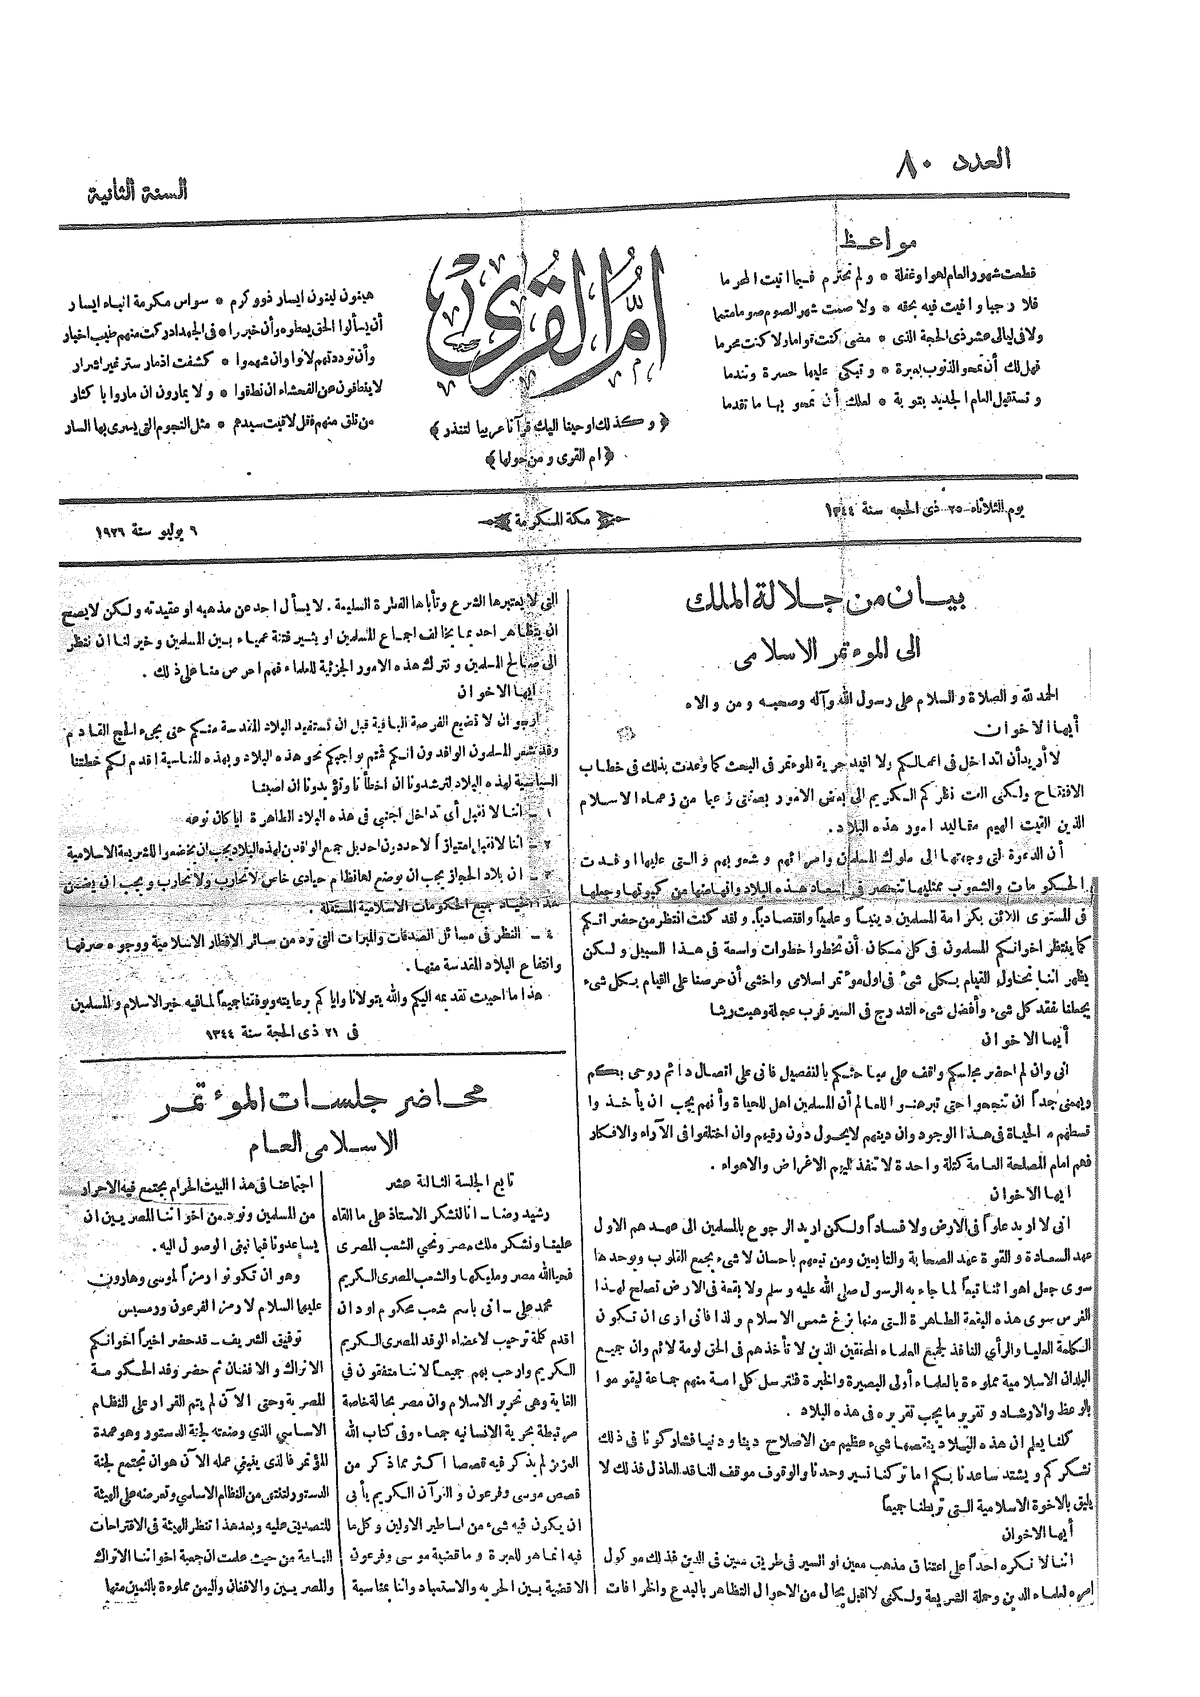 العدد ٨٠
السنة الثانية
مواعظ
قطعت شهور العام لهوا وغفلة * ولم تحترم فيما اتيت المحرما
فلا رجبا وافيت فيه بحقه * ولا صمت شهر الصوم صوما متمما
ولا في ليالي عشر ذي الحجة الذي * مضى كنت قواما ولا كنت محرما
فهل لك أن تمحو الذنوب بعبرة * وتبكي عليها حسرة وتندما
وتستقبل العام الجديد بتوبة * لعلك أن تمحو بها ما تقدما
أم القرى
﴿ وكذلك اوحينا اليك قرآنا عربيا لتنذر ﴾
﴿ ام القرى ومن حولها ﴾
هينون لينون ايسار ذوو كرم * سواس مكرمة ابناء ايسار
أن يسألوا الحق يعطوه وأن خبروا * في الجهد ادركت منهم طيب اخبار
وأن توددتهم لانوا وان شهموا * كشفت اذمار ستر غير اشرار
لا ينطقون عن الفحشاء ان نطقوا * ولا يمارون ان ماروا باكثار
من تلق منهم تقل لاقيت سيدهم * مثل النجوم التي يسرى بها السار
يوم الثلاثاء ٢٥ ذي الحجه سنة ١٣٤٤
مكة المكرمة
٦ يوليو سنة ١٩٢٦
بيان من جلالة الملك
الى الموءتمر الاسلامى
الحمد لله والصلاة والسلام على رسول الله وآله وصحبه ومن والاه
أيها الاخوان
لا أريد أن اتداخل في اعمالكم ولا اقيد حرية الموءتمر في البحث كما وعدت بذلك في خطاب
الافتتاح ولكنى الفت نظركم الكريم الى بعض الامور بصفتى زعيما من زعماء الاسلام
الذين القيت اليهم مقاليد امور هذه البلاد.
أن الدعوة التى وجهتها الى ملوك المسلمين وامرائهم وشعوبهم والتى عليها اوفدت
الحكومات والشعوب ممثليها تنحصر في إسعاد هذه البلاد وانهاضها من كبوتها وجعلها
فى المستوى اللائق بكرامة المسلمين دينياً وعلمياً واقتصادياً. ولقد كنت انتظر من حضراتكم
كما ينتظر اخوانكم المسلمون في كل مكان أن تخطوا خطوات واسعة في هذا السبيل ولكن
يظهر اننا نحاول القيام بكل شئ في اول موءتمر اسلامى واخشى أن حرصنا على القيام بكل شىء
يجعلنا نفقد كل شىء وأفضل شىء التدرج في السير فرب عجلة وهبت ريثا
أيها الاخوان
انى وان لم احضر مجالسكم واقف على مباحثكم بالتفصيل فانى على اتصال دائم روحى بكم
ويهمنى جداً ان تنجحوا حتى تبرهنوا للعالم أن المسلمين اهل للحياة وأنهم يجب ان يأخذوا
قسطهم م الحياة فى هذا الوجود وان دينهم لا يحول دون رقيهم وان اختلفوا فى الآراء والافكار
فهم امام المصلحة العامة كتلة واحدة لا تنفذ اليهم الاغراض والاهواء .
ايها الاخوان
انى لا اريد علواً فى الارض ولا فساداً ولكن اريد الرجوع بالمسلمين الى عهدهم الاول
عهد السعادة والقوة عهد الصحابة والتابعين ومن تبعهم باحسان لا شىء يجمع القلوب ويوحدها
سوى جعل اهوائنا تبعاً لما جاء به الرسول صلى الله عليه وسلم ولا بقعة فى الارض تصلح لهذا
الغرس سوى هذه البقعة الطاهرة التى منها بزغ شمس الاسلام ولذا فانى ارى ان تكون
الكلمة العليا والرأي النافذ لجميع العلماء المحققين الذين لا تأخذهم فى الحق لومة لائم وان جميع
البلدان الاسلامية مملوءة بالعلماء أولى البصيرة والخبرة فلترسل كل امة منهم جماعة ليقوموا
بالوعظ والارشاد وتقرير ما يجب تقريره فى هذه البلاد .
كلنا يعلم ان هذه البلاد ينقصها شىء عظيم من الاصلاح دينا ودنيا فشاركونا فى ذلك
نشكركم ويشتد ساعدنا بكم اما تركنا نسير وحدنا والوقوف موقف الناقد العاذل فذلك لا
يليق بالاخوة الاسلامية التى تربطنا جميعاً
أيها الاخوان
اننا لا نكره احداً على اعتناق مذهب معين او السير فى طريق معين فى الدين فذلك موكول
امره لعلماء الدين وحملة الشريعة ولكنى لا اقبل بحال من الاحوال التظاهر بالبدع والخرافات
التى لا يعتبرها الشرع وتأباها الفطرة السليمة . لا يسأل احد عن مذهبه او عقيدته ولكن لا يصح
ان يتظاهر احد بما يخالف اجماع المسلمين او يثير فتنة عمياء بين المسلمين وخير لنا ان ننظر
الى صالح المسلمين ونترك هذه الامور الجزئية للعلماء فهم احرص منا على ذلك .
ايها الاخوان
ارجو ان لا تضيع الفرصة الباقية قبل ان تستفيد البلاد المقدسة منكم حتى يجىء الحج القادم
وقد شعر المسلمون الوافدون انكم قمتم بواجبكم نحو هذه البلاد وبهذه المناسبة اقدم لكم خطتنا
السياسية لهذه البلاد لترشدونا ان اخطأنا وتؤيدونا ان اصبنا
١ ـ اننا لا نقبل أى تداخل اجنبى فى هذه البلاد الطاهرة ايا كان نوعه
٢ ـ اننا لا نقبل امتيازاً لاحد دون احد بل جميع الوافدين لهذه البلاد يجب ان يخضعوا للشريعة الاسلامية
٣ ـ ان بلاد الحجاز يجب ان يوضع لها نظام حيادى خاص لا تحارب ولا تحارب ويجب ان يضمن
هذا الحياد جميع الحكومات الاسلامية المستقلة .
٤ ـ النظر فى مسائل الصدقات والمبرات التى ترد من سائر الاقطار الاسلامية ووجوه صرفها
وانتفاع البلاد المقدسة منها .
هذا ما احببت تقديمه اليكم والله يتولانا واياكم برعايته ويوفقنا جميعاً لما فيه خير الاسلام والمسلمين
فى ٢١ ذى الحجة سنة ١٣٤٤
محاضر جلسات الموءتمر
الاسلامى العام
تابع الجلسة الثالثة عشر
رشيد رضا ـ انا لنشكر الاستاذ على ما القاه
علينا ونشكر ملك مصر ونحيي الشعب المصرى
فحيا الله مصر ومليكها والشعب المصرى الكريم
محمد على ـ انى باسم شعب محكوم اود ان
اقدم كلمة ترحيب لاعضاء الوفد المصرى الكريم
الكريم وارحب بهم جميعاً لاننا متفقون في
الغاية وهى تحرير الاسلام وان مصر بحالة خاصة
مرتبطة بحرية الانسانيه جمعاء وفى كتاب الله
العزيز لم يذكر فيه قصصا اكثر مما ذكر من
قصص موسى وفرعون والقرآن الكريم يأبى
ان يكون فيه شىء من اساطير الاولين وكل ما
فيه انما هو للعبرة وما قضية موسى وفرعون
الا قضية بين الحريه والاستعباد واننا بمناسبة
اجتماعنا فى هذا البيت الحرام يجتمع فيه الاحرار
من المسلمين ونود من اخواننا المصريين ان
يساعدونا فيما نبتغى الوصول اليه .
وهو ان تكونوا رمزاً لموسى وهارون
عليهما السلام لا رمز الفرعون ورمسيس
توفيق الشريف ـ قد حضر اخيراً اخوانكم
الاتراك والافغان ثم حضر وفد الحكومة
المصرية وحتى الآن لم يتم القرار على النظام
الاساسى الذى وضعته لجنة الدستور وهو عمدة
المؤتمر فالذى ينبغى عمله الآن هو ان تجتمع لجنة
الدستور لتنتهى من النظام الاساسى وتعرضه على الهيئة
للتصديق عليه وبعد هذا تنظر الهيئة فى الاقتراحات
العامة من حيث علمت ان جعبة اخواننا الاتراك
والمصريين والافغان واليمن مملوءة بالثمين منها